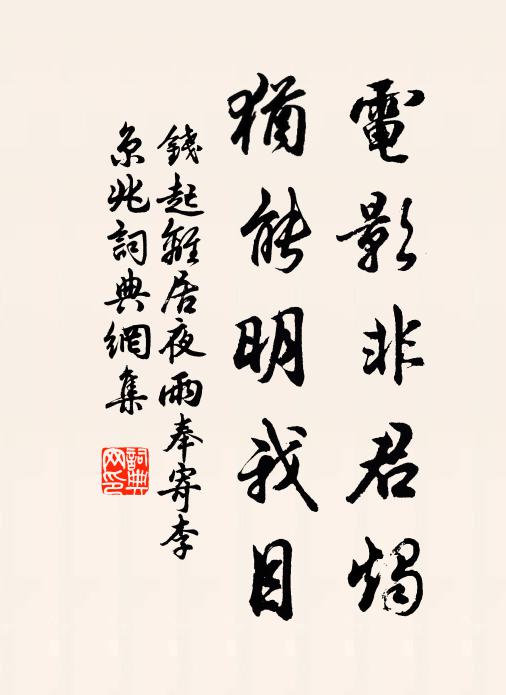 電影非君燭
猶能明我目
錢起離居夜雨奉寄李
京兆詞典網集
詞典
网印